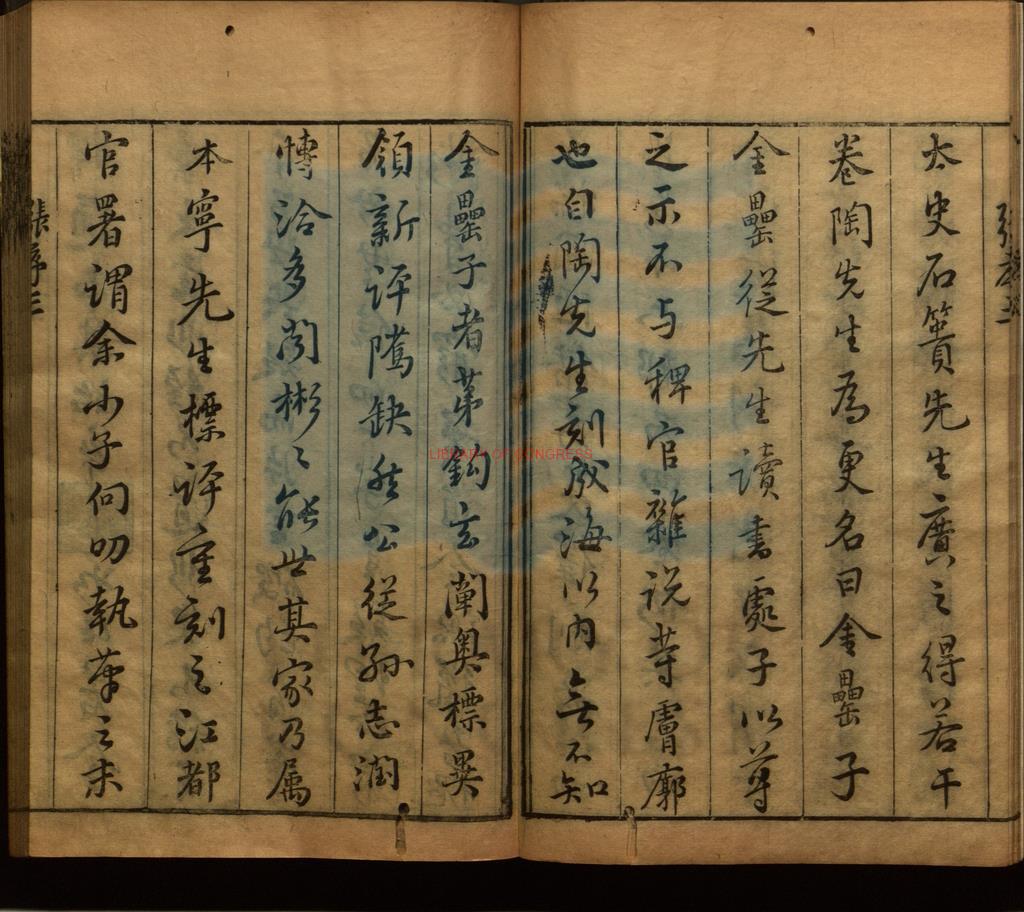 太史石簣先生廣之得若干
卷陶先生為更名曰金罍子
金罍從先生讀書處子以尊
之示不与稗官雜說等膚廓
也自陶先生刻成海以內無不知
金罍子者苐鉤玄闡奥標異
領新評隲缺然公從孫志潤
愽洽多聞彬〻能世其家乃属
本寧先生標評重刻之江都
官署謂余小子何叨執筆之末
張序三
LIBRARY OF CONGRESS